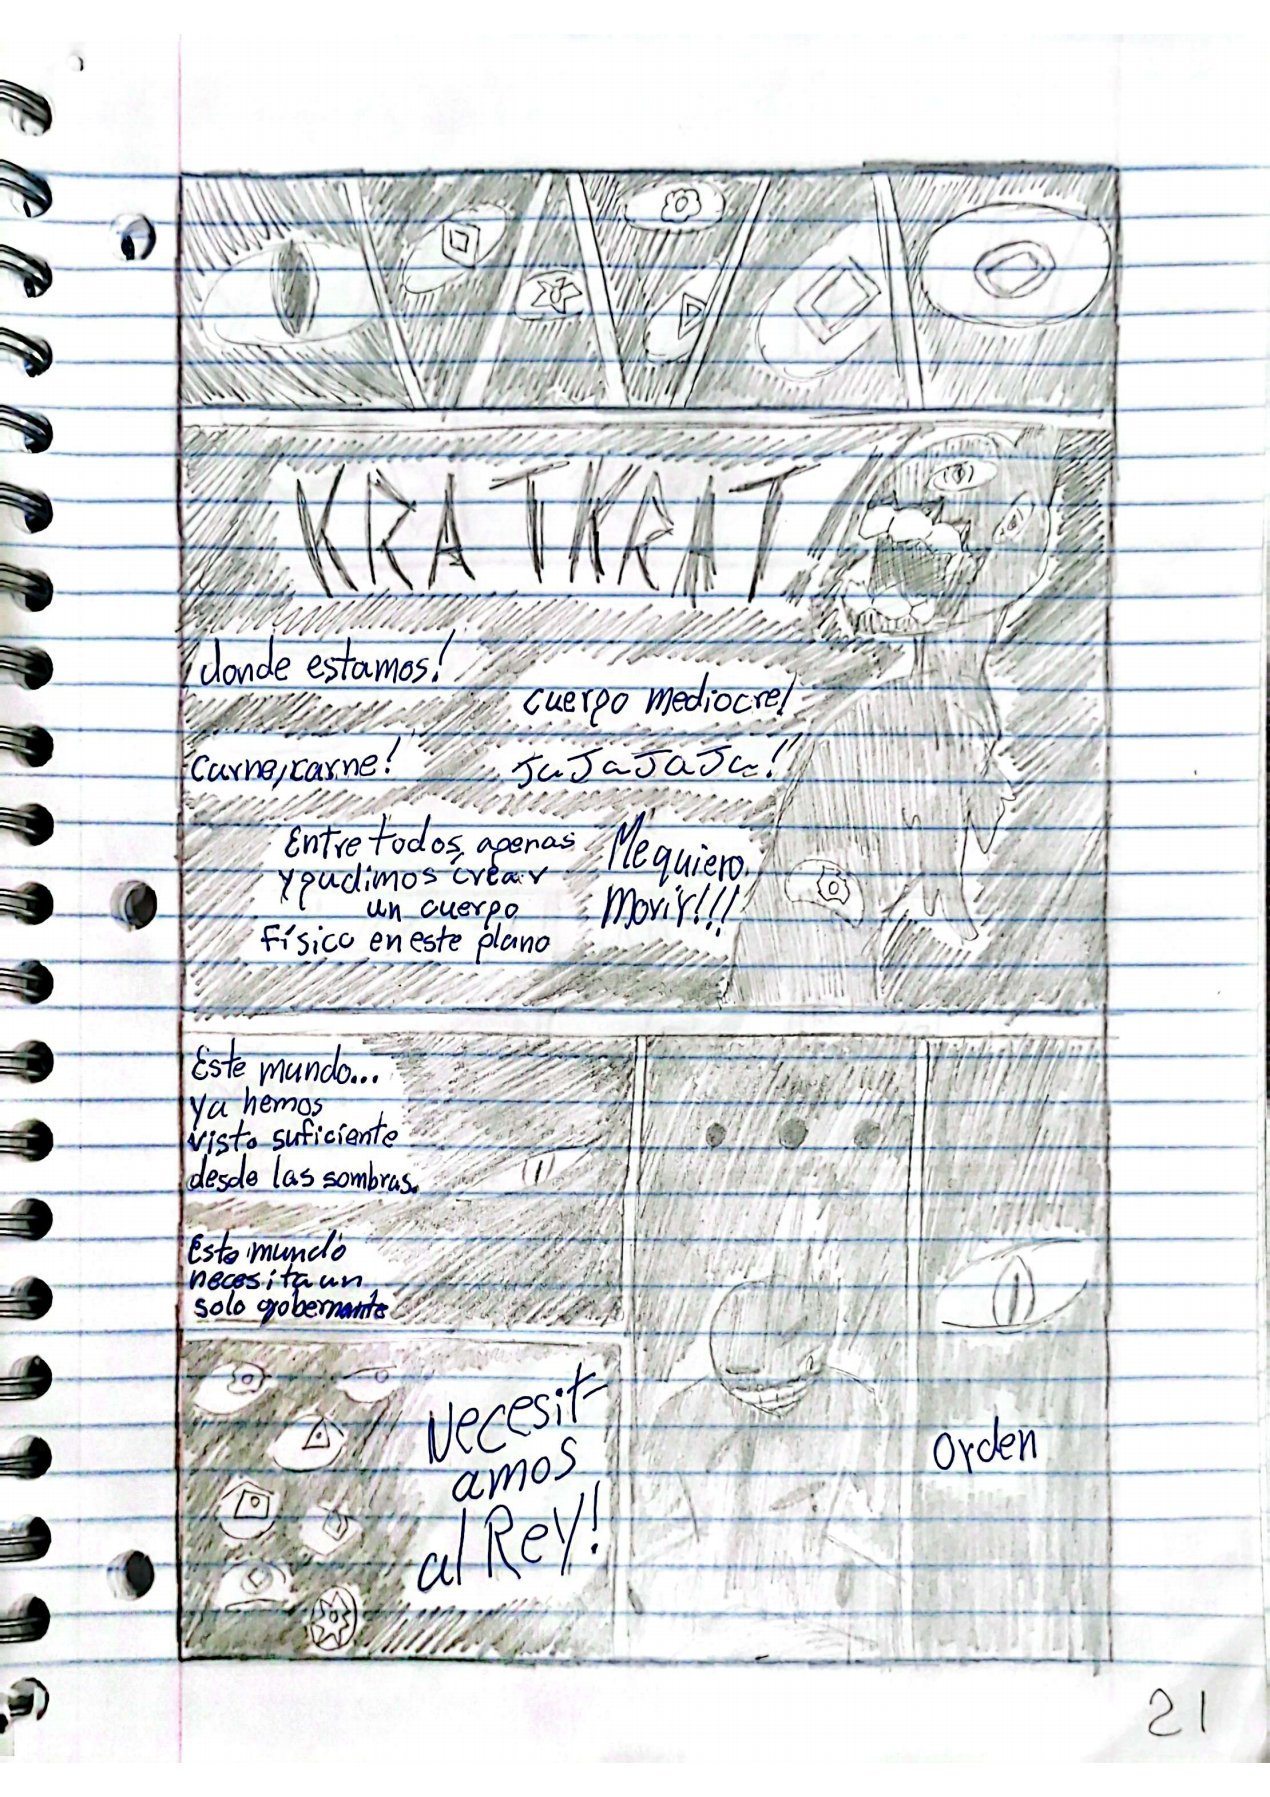 KRATKRAT
donde estamos!
cuerpo mediocre!
Carne, carne!
JaJaJaJa!
Entre todos, apenas
y pudimos crear
un cuerpo
físico en este plano
Me quiero
morir!!!
Este mundo...
ya hemos
visto suficiente
desde las sombras.
Este mundo
necesita un
solo gobernante
Necesit-
amos
al Rey!
Orden
21